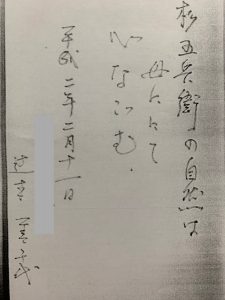 杉五兵衛の自然は
母ににて
心なごむ、
平成二年二月十一日